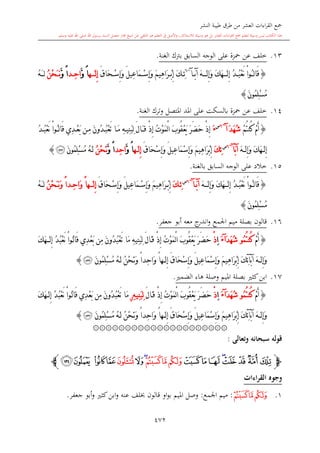 جمع القراءات العشر من طرق طيبة النشر
١٣. خلف عن حمزة على الوجه السابق بترك الغنة.
﴿ قَالُوا۟ نَعۡبُدُ إِلَـٰهَكَ وَإِلَـٰهَ ءَابَآئِكَ إِبۡرَٰهِيمَ وَإِسۡمَـٰعِيلَ وَإِسۡحَـٰقَ إِلَـٰهًا وَٰحِدًا وَنَحۡنُ لَهُۥ
مُسۡلِمُونَ ﴾
١٤. خلف عن حمزة بالسكت على المد المتصل وترك الغنة.
﴿ أَمۡ كُنتُمۡ شُهَدَآءَ إِذۡ حَضَرَ يَعۡقُوبَ ٱلۡمَوۡتُ إِذۡ قَالَ لِبَنِيهِ مَا تَعۡبُدُونَ مِنۢ بَعۡدِى قَالُوا۟ نَعۡبُدُ
إِلَـٰهَكَ وَإِلَـٰهَ ءَابَآئِكَ إِبۡرَٰهِيمَ وَإِسۡمَـٰعِيلَ وَإِسۡحَـٰقَ إِلَـٰهًا وَٰحِدًا وَنَحۡنُ لَهُۥ مُسۡلِمُونَ ﴾
١٥. خلاد على الوجه السابق بالغنة.
﴿ قَالُوا۟ نَعۡبُدُ إِلَـٰهَكَ وَإِلَـٰهَ ءَابَآئِكَ إِبۡرَٰهِيمَ وَإِسۡمَـٰعِيلَ وَإِسۡحَـٰقَ إِلَـٰهًا وَٰحِدًا وَنَحۡنُ لَهُۥ
مُسۡلِمُونَ ﴾
١٦. قالون بصلة ميم الجمع واندرج معه أبو جعفر.
﴿ أَمۡ كُنتُمُۥ شُهَدَآءَ إِذۡ حَضَرَ يَعۡقُوبَ ٱلۡمَوۡتُ إِذۡ قَالَ لِبَنِيهِ مَا تَعۡبُدُونَ مِنۢ بَعۡدِى قَالُوا۟ نَعۡبُدُ إِلَـٰهَكَ
وَإِلَـٰهَ ءَابَآئِكَ إِبۡرَٰهِيمَ وَإِسۡمَـٰعِيلَ وَإِسۡحَـٰقَ إِلَـٰهًا وَٰحِدًا وَنَحۡنُ لَهُۥ مُسۡلِمُونَ ﴾
١٧. ابن كثير بصلة الميم وصلة هاء الضمير.
﴿ أَمۡ كُنتُمُۥ شُهَدَآءَ إِذۡ حَضَرَ يَعۡقُوبَ ٱلۡمَوۡتُ إِذۡ قَالَ لِبَنِيهِۦ مَا تَعۡبُدُونَ مِنۢ بَعۡدِى قَالُوا۟ نَعۡبُدُ إِلَـٰهَكَ
وَإِلَـٰهَ ءَابَآئِكَ إِبۡرَٰهِيمَ وَإِسۡمَـٰعِيلَ وَإِسۡحَـٰقَ إِلَـٰهًا وَٰحِدًا وَنَحۡنُ لَهُۥ مُسۡلِمُونَ ﴾
قوله سبحانه وتعالى :
﴿ تِلۡكَ أُمَّةٌ قَدۡ خَلَتۡ لَهَا مَا كَسَبَتۡ وَلَكُم مَّا كَسَبۡتُمۡ وَلَا تُسۡـَٔلُونَ عَمَّا كَانُوا۟ يَعۡمَلُونَ ﴾
وجوه القراءات
١. وَلَكُم مَّا كَسَبۡتُمۡ : ميم الجمع: وصل الميم بواو قالون بخلف عنه وابن كثير وأبو جعفر.
٤٧٢